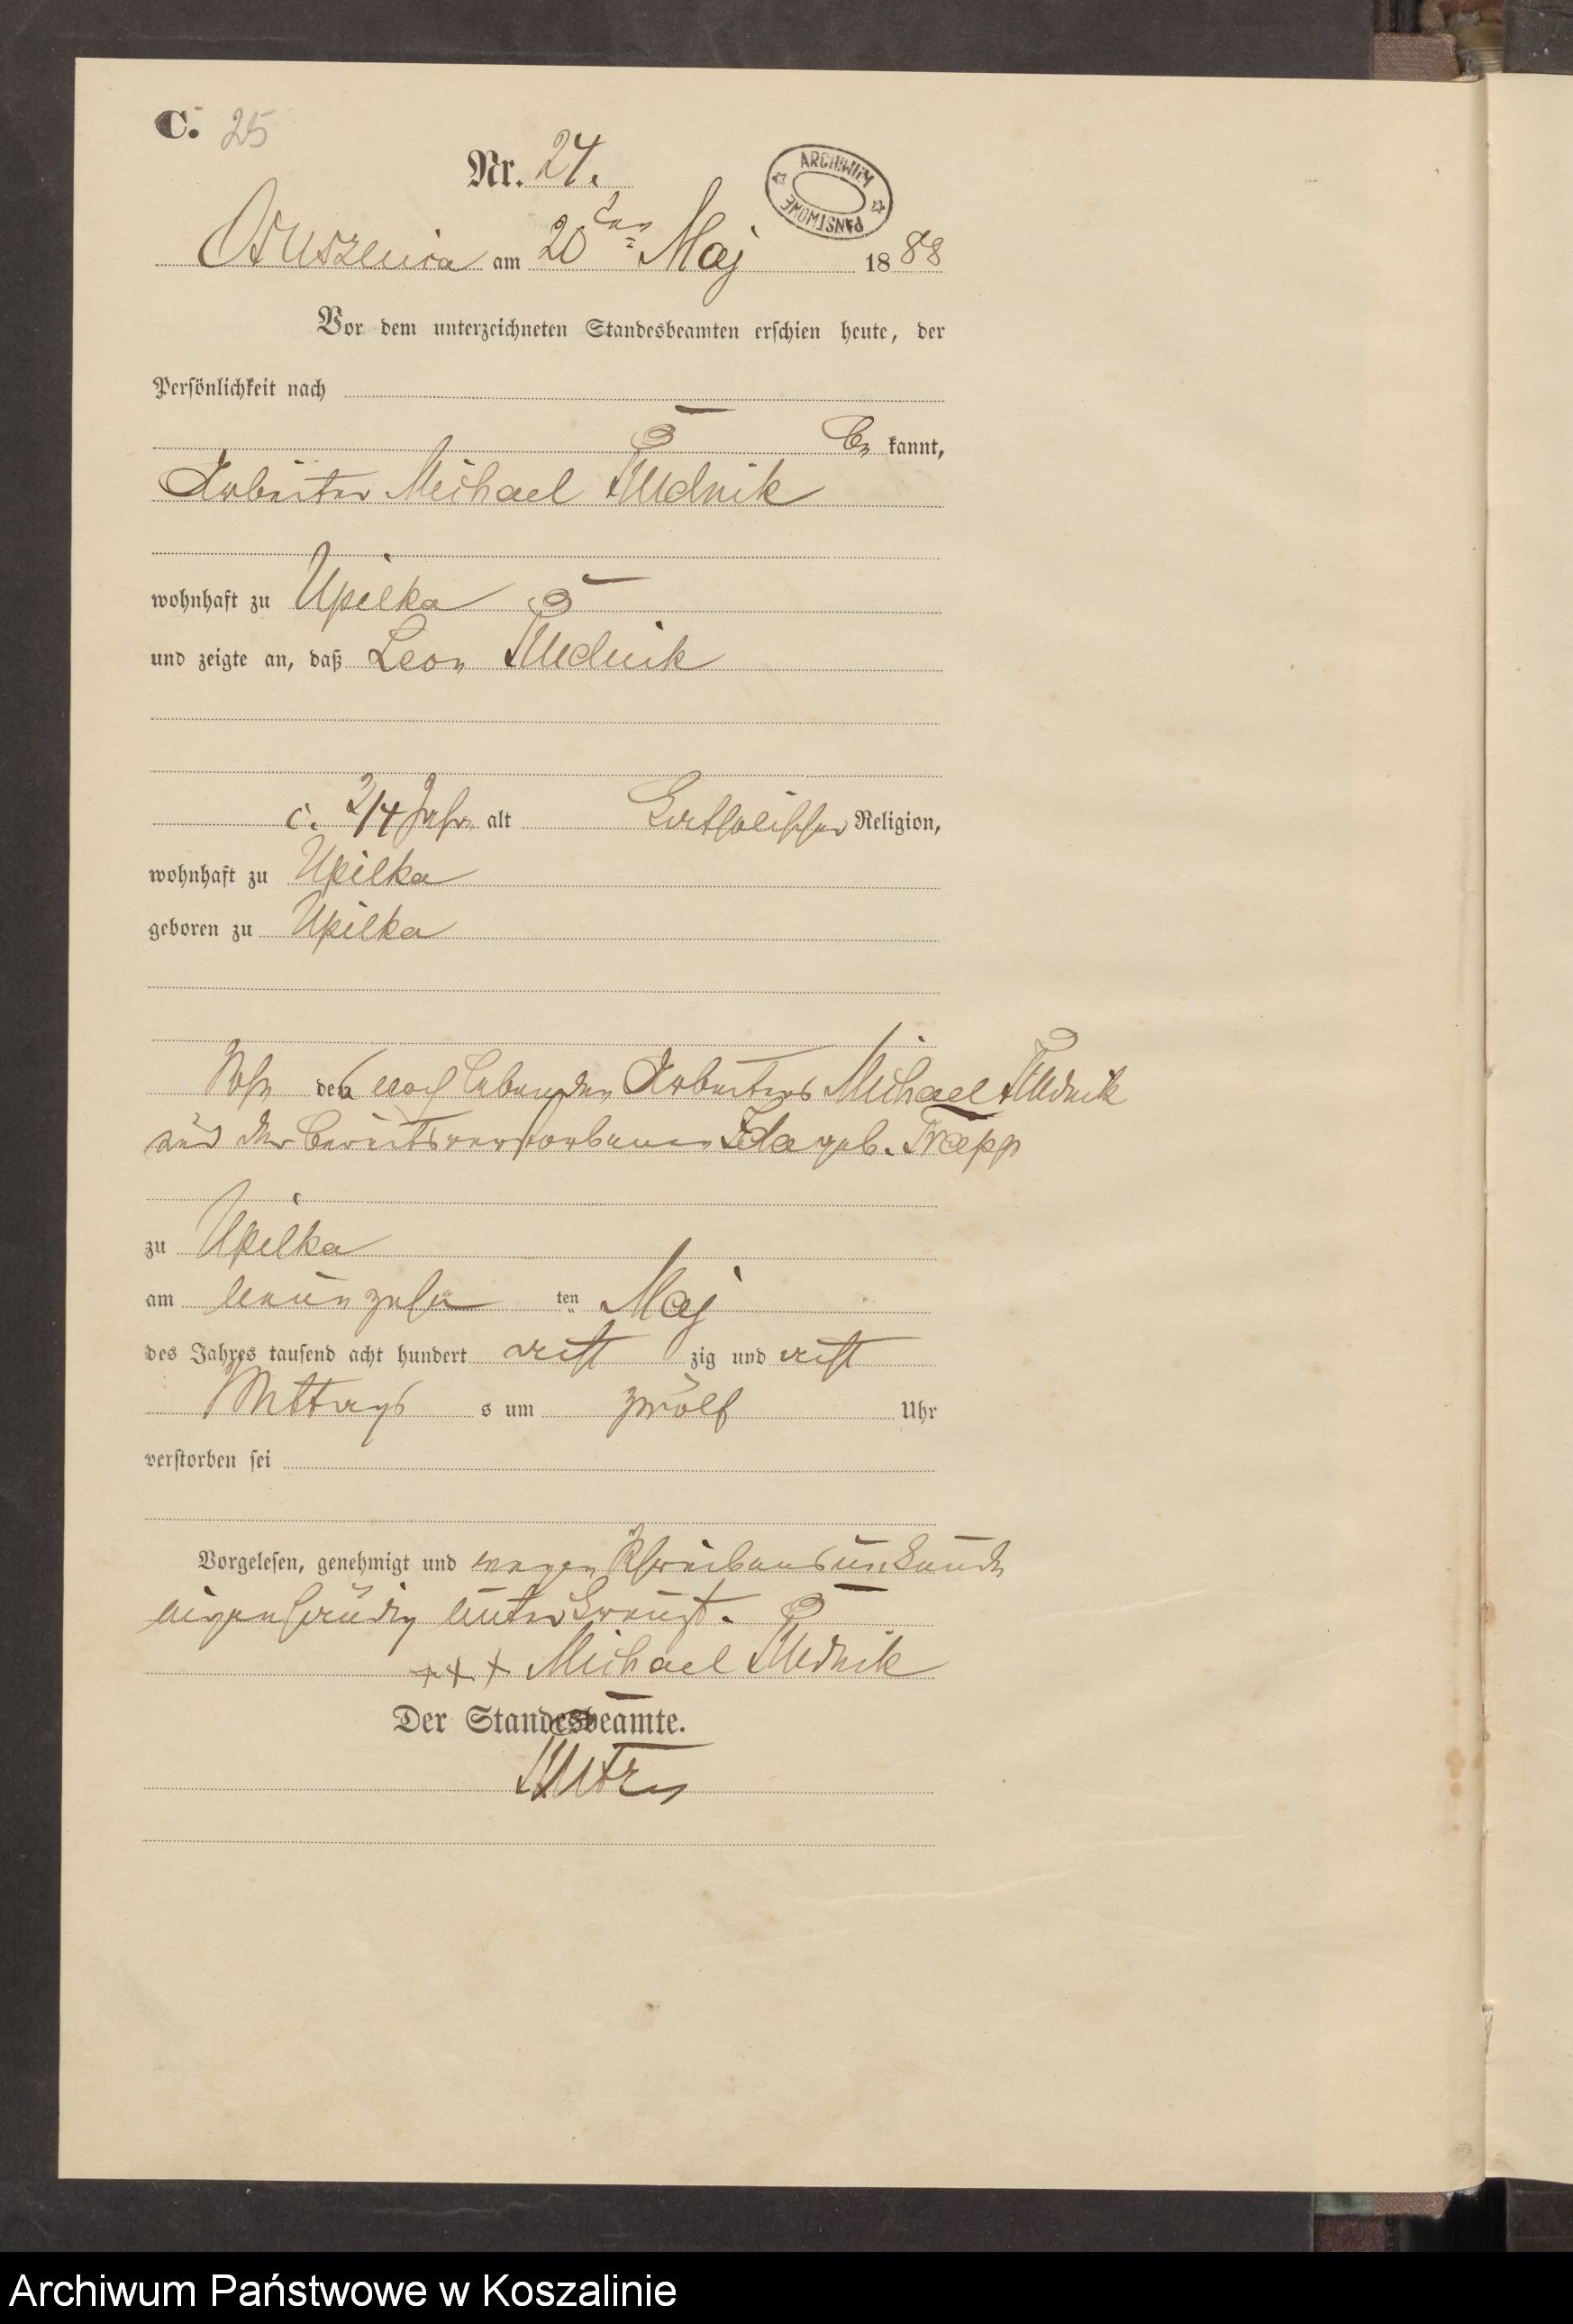 C. 25
Nr. 24.
Osuszenica am 20ten Maj 1888
ARCHIWUM PAŃSTWOWE
Vor dem unterzeichneten Standesbeamten erschien heute, der
Persönlichkeit nach
be kannt,
Arbeiter Michael Rudnik
wohnhaft zu Upilka
und zeigte an, daß Leon Rudnik
c. 3/4 Jahr alt katholischer Religion,
wohnhaft zu Upilka
geboren zu Upilka
Sohn des noch lebenden Arbeiters Michael Rudnik
und der bereits verstorbenen Ida geb. Trapp
zu Upilka
am neunzehn ten Maj
des Jahres tausend acht hundert acht zig und acht
Mittags s um zwölf Uhr
verstorben sei
Vorgelesen, genehmigt und wegen Schreibensunkunde
eigenhändig unterkreuzt.
+++ Michael Rudnik
Der Standesbeamte.
Archiwum Państwowe w Koszalinie